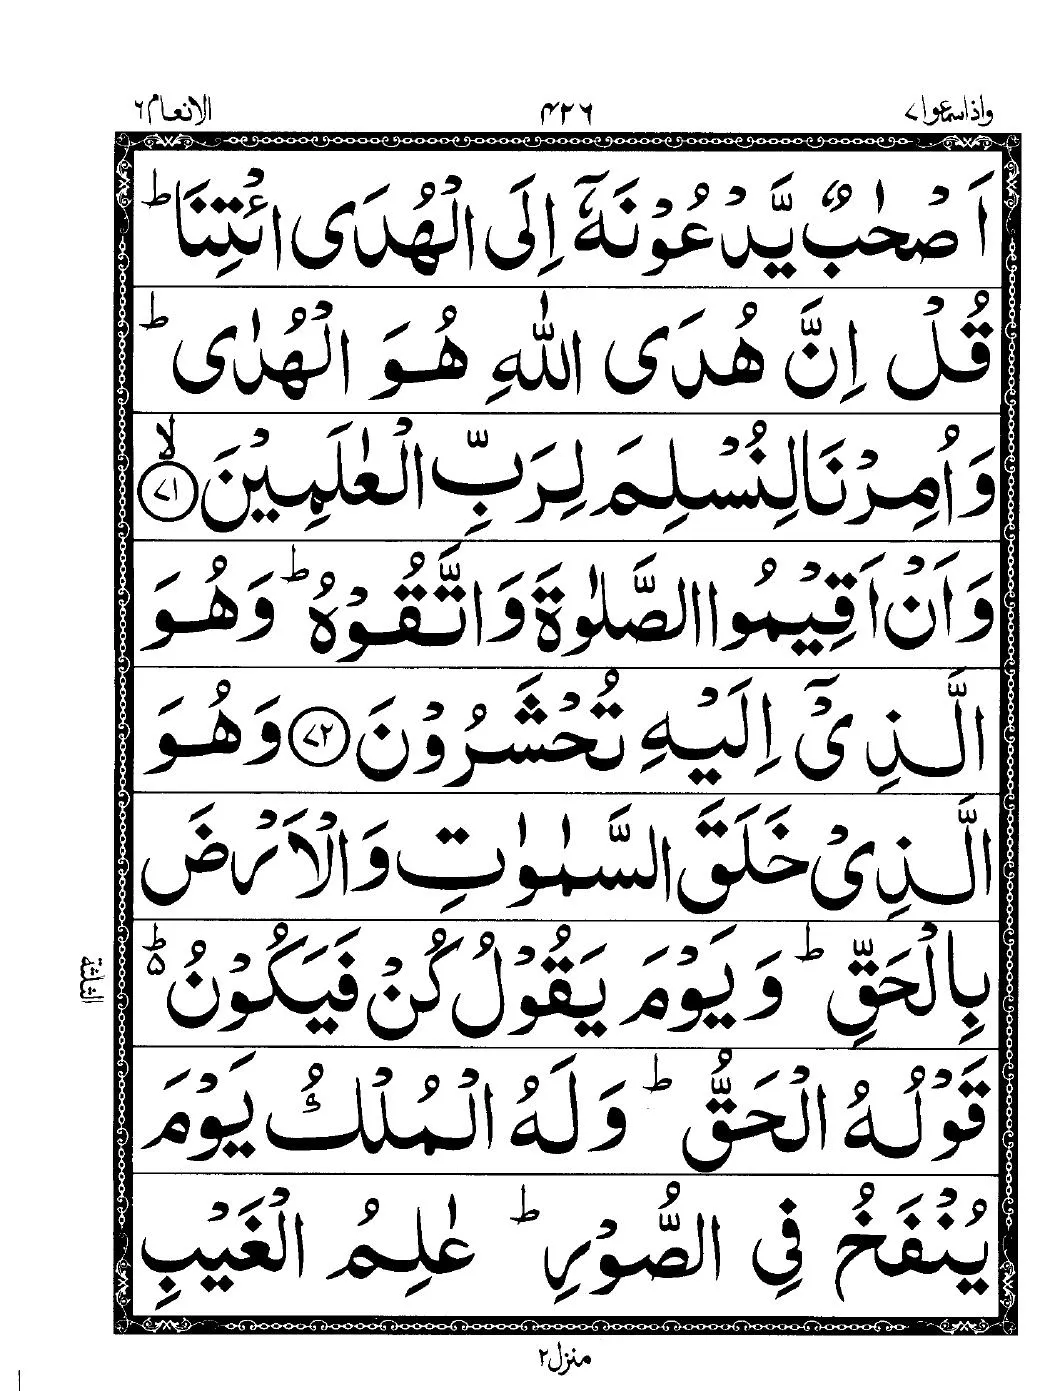 واذاسمعوا ٧
٤٢٦
الانعام ٦
اَصْحٰبٌ يَّدْعُوْنَهٗۤ اِلَى الْهُدَى ائْتِنَا ؕ
قُلْ اِنَّ هُدَى اللّٰهِ هُوَ الْهُدٰى ؕ
وَاُمِرْنَا لِنُسْلِمَ لِرَبِّ الْعٰلَمِيْنَ ۙ ﴿٧١﴾
وَاَنْ اَقِيْمُوا الصَّلٰوةَ وَاتَّقُوْهُ ؕ وَهُوَ
الَّذِىْۤ اِلَيْهِ تُحْشَرُوْنَ ﴿٧٢﴾ وَهُوَ
الَّذِىْ خَلَقَ السَّمٰوٰتِ وَالْاَرْضَ
بِالْحَقِّ ؕ وَيَوْمَ يَقُوْلُ كُنْ فَيَكُوْنُ ؕ۵
قَوْلُهُ الْحَقُّ ؕ وَلَهُ الْمُلْكُ يَوْمَ
يُنْفَخُ فِى الصُّوْرِ ؕ عٰلِمُ الْغَيْبِ
الثلثة
منزل ٢